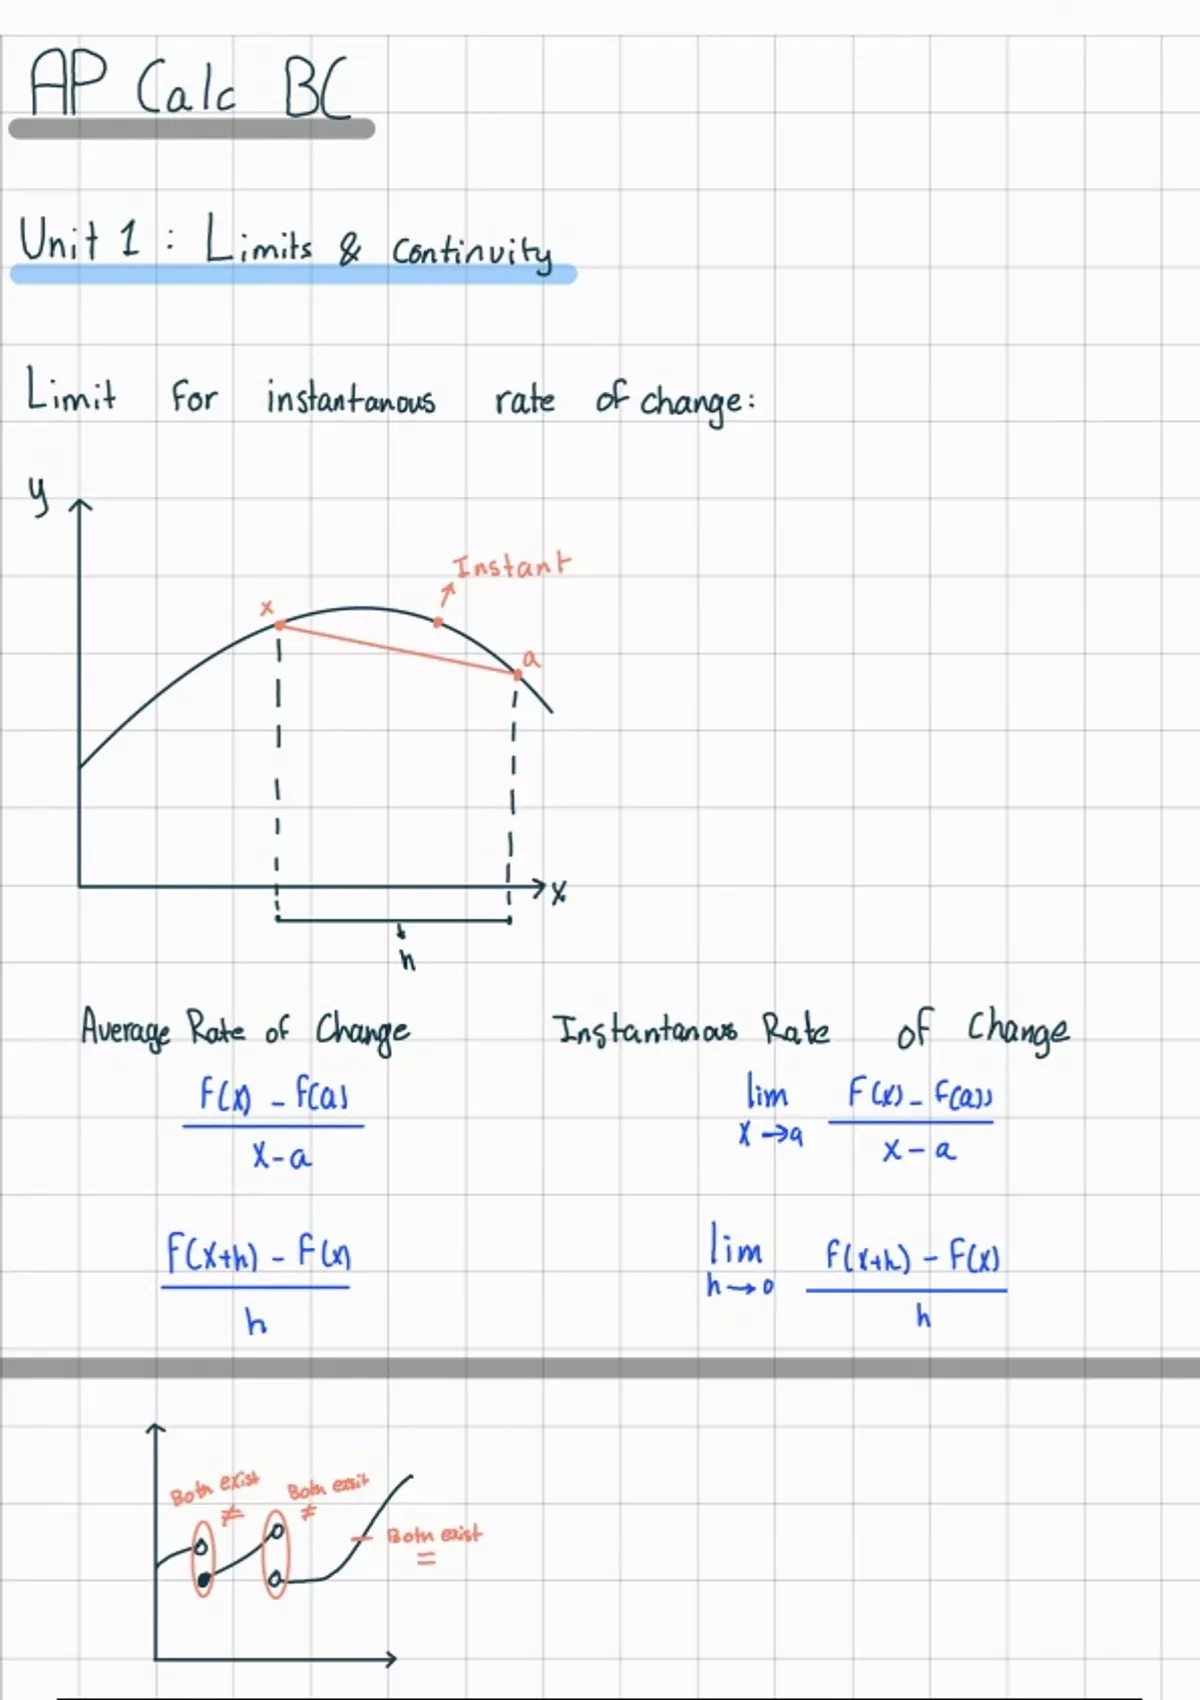 AP Calc BC
Unit 1 : Limits & Continuity
Limit for instantanous rate of change:
y
Instant
x
a
x
h
Average Rate of Change
Instantanous Rate of Change
F(x) - f(a)
x-a
lim x→a F(x) - f(a))
x - a
F(x+h) - F(x)
h
lim h→0 F(x+h) - F(x)
h
Both exist
≠
Both exsit
≠
Both exist
=